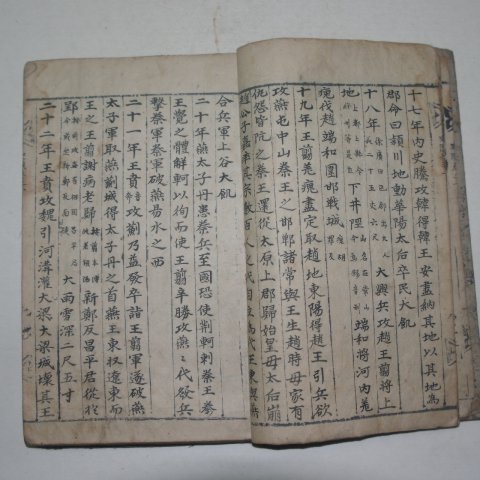 十七年内史騰攻韓得韓王安盡納其地以其地爲
郡命曰潁川地動華陽太后卒民大飢
十八年大興兵攻趙王翦將上
地下井陘端和將河内羌
瘣伐趙端和圍邯鄲城
十九年王翦羌瘣盡定取趙地東陽得趙王引兵欲
攻燕屯中山秦王之邯鄲諸常與王生趙時母家有
仇怨皆阬之秦王還從太原上郡歸始皇母太后崩
趙公子嘉率其宗數百人之代自立爲代王東與燕
合兵軍上谷大飢
二十年燕太子丹患秦兵至國恐使荆軻刺秦王秦
王覺之體解軻以徇而使王翦辛勝攻燕燕代發兵
擊秦軍秦軍破燕易水之西
二十一年王賁攻薊乃益發卒詣王翦軍遂破燕
太子軍取燕薊城得太子丹之首燕王東收遼東而
王之王翦謝病老歸新鄭反昌平君徙於
郢大雨雪深二尺五寸
二十二年王賁攻魏引河溝灌大梁大梁城壞其王